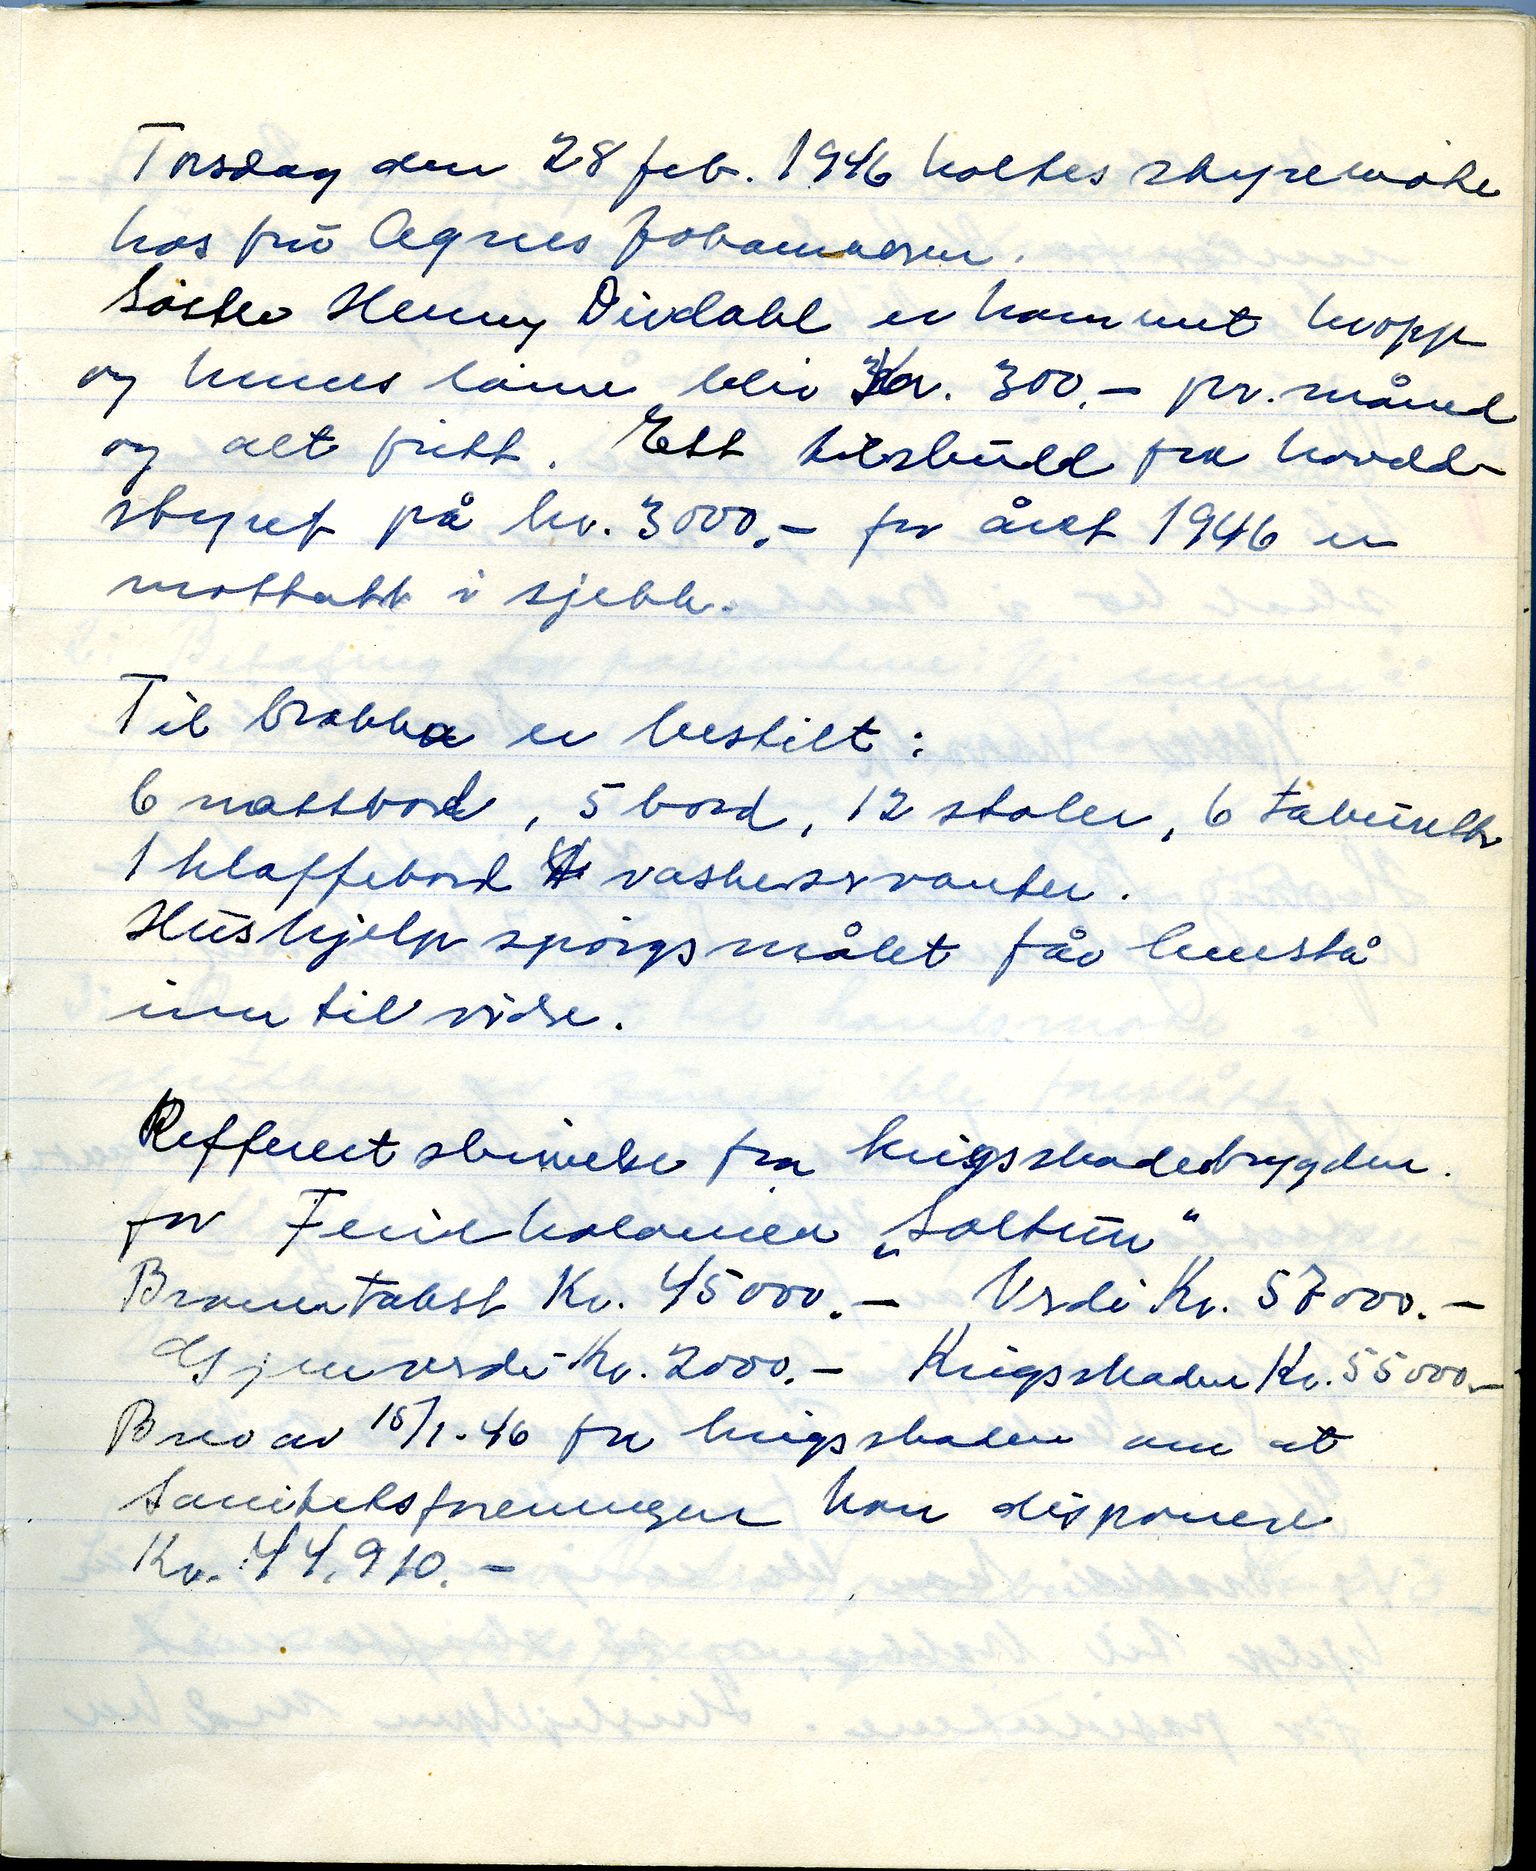 Torsdag den 28 feb. 1946 holtes styremöte
hos frü Agnes Johannesen.
Söster Henny Divdahl er kommet hropp
og hennes lönn blir Kr. 300.- pr. måned
og alt fritt. Ett tilskudd fra hovdd-
styret på kr. 3000.- for året 1946 er
mottatt i sjekk.
Til brakka er bestilt:
6 nattbord, 5 bord, 12 stoler, 6 taburetter
1 klaffebord vaskeservanter.
Hüshjelp spörgsmålet får henstå
inntil vidre.
Refferert skrivelse fra krigsskadetrygden.
for Feriekolonien „Soltün"
Branntakst Kr. 45000.- Verdi Kr. 57000.-
Gjenverdi Kr. 2000.- Krigsskaden Kr. 55000.-
Brev av 15/1-46 fra krigsskaden om at
Sanitetsforeningen kan disponere
Kr. 44,910.-